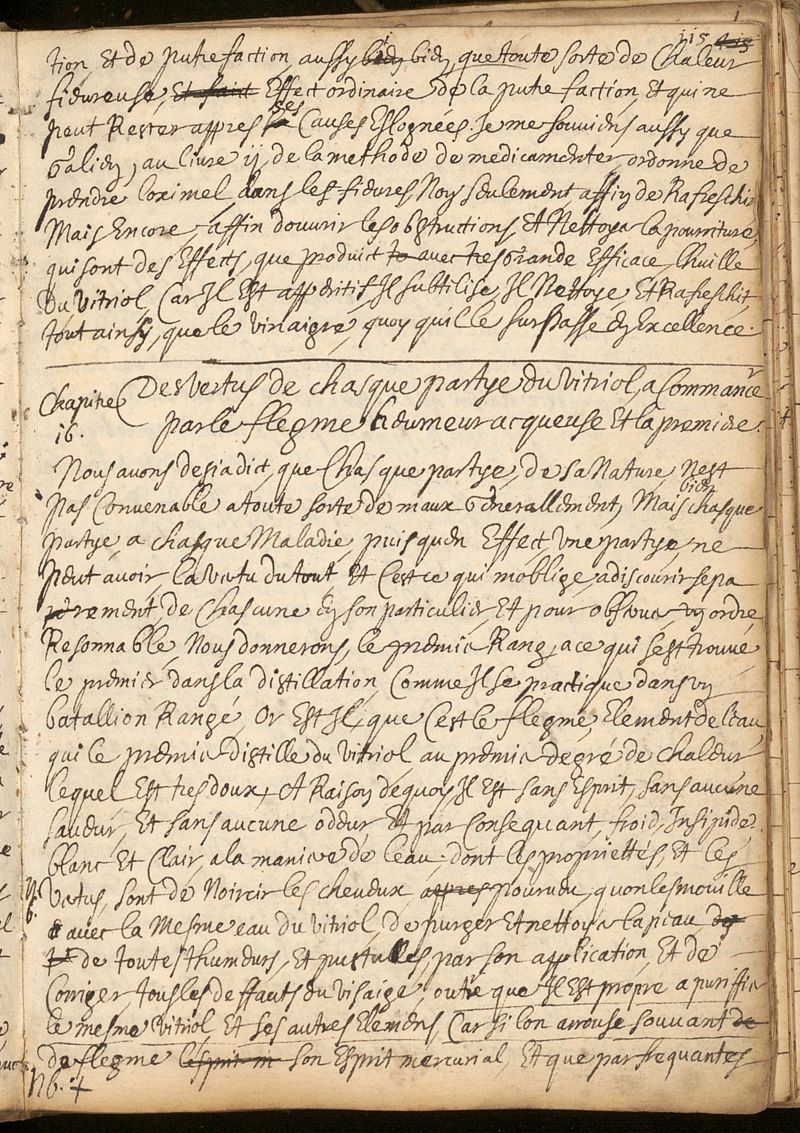 1
115
tion, Et de putrefaction, aussy bien que toute sorte de Chaleur
fieureuse, Et fait Effect ordinaire de la putrefaction, Et qui ne
peut Rester appres ses Causes Eslognées. Je me souuiens aussy que
Galien, au liure ij de la methode de medicamenter, ordonne de
prendre loximel dans les fieures Non seulement affin de Rafreschir
Mais Encore, affin douurir les obstructions, Et Nettoyer la pourriture,
qui sont des Effects, que produict auec tres Grande Efficace, lhuille
du Vitriol, Car Il Est apperitif Il subtilise, Il Nettoye, Et Rafreschit,
tout ainsy, que le vinaigre, quoy quil le surpasse En Excellence.
Chapitre Des vertus de chasque partye du vitriol, a Commancer
16. par le flegme humeur acqueuse Et la premiere.
Nous auons desia dict, que Chasque partye, de sa Nature, Nest
bien
pas Conuenable a toute sorte de maux Generallement, Mais chasque
partye a chasque Maladie puis quen Effect, Vne partye, ne
peut auoir la vertu du tout Et Cest ce qui moblige, a discourir sepa
rement, de Chascune En son particulier, Et pour obseruer vn ordre
Resonnable, Nous donnerons, le premier Rang, a ce qui sest trouué
le premier dans la distillation, Comme Il se practique dans vn
batallion Rangé, Or Est Il, que Cest le flegme, Element de leau,
qui le premier distille du vitriol au premier degré de chaleur
lequel Est tres doux, A Raison dequoy Il Est sans Esprit, sans aucune
saueur, Et sans aucune odeur Et par Consequant, froid, Insipide
blanc Et Clair, a la maniere de leau. dont les propriettés, Et les
vertus, sont de Noircir les cheueux, appres pourueu, quon les mouille
auec la Mesme eau du vitriol, de purger Et nettoyer la peau
de toutes humeurs, Et pustulles, par son application, Et de
Corriger tous les deffauts du visaige, outre que Il Est propre a puriffier
le mesme vitriol Et ses autres Elemens, Car si lon arrouse souuant de
de flegme lesprit son Esprit mercurial, Et que par frequantes
Nb. +